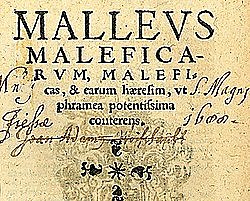 MALLEVS
MALEFICA-
RVM, MALEFI-
cas, & earum hæresim, vt
S. Magni
phramea potentissima
conterens.
1600
Adam